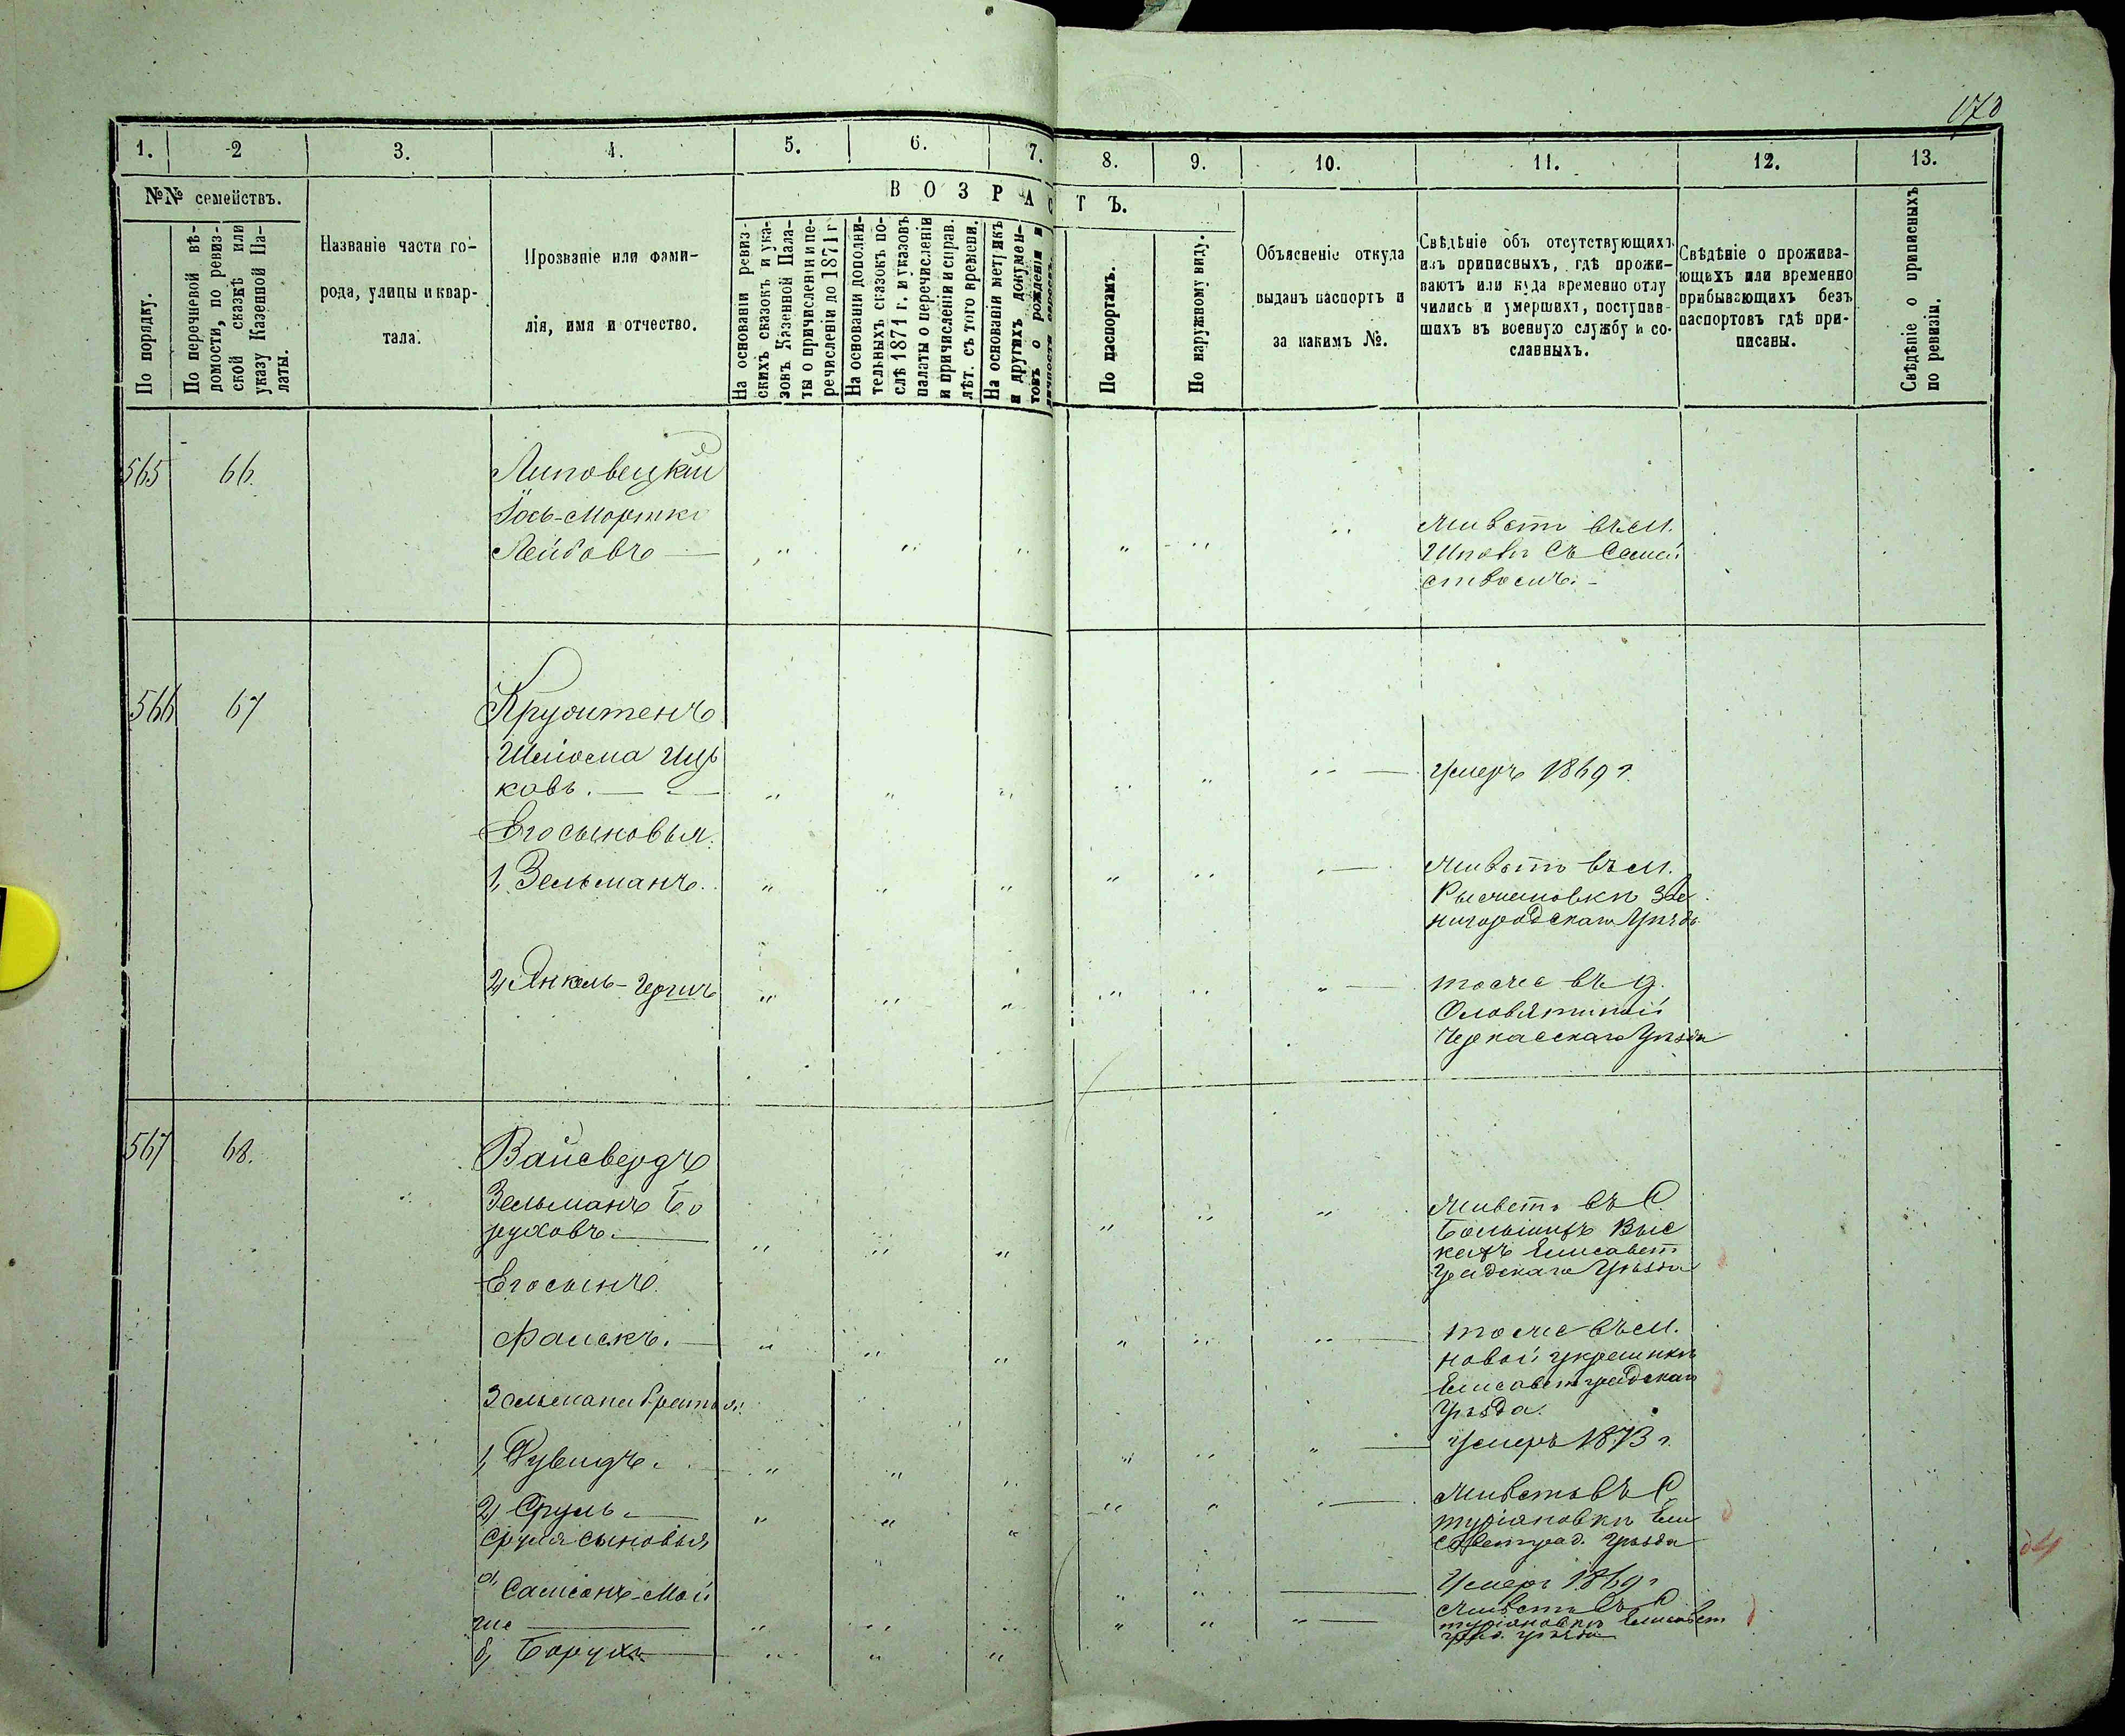 1.
2
3.
4.
5.
6.
7.
8.
9.
10.
11.
12.
13.
№№ семействъ.
В О З Р А С Т Ъ.
По порядку.
По перечневой вѣ-
домости, по ревиз-
ской сказкѣ или
указу Казенной Па-
латы.
Названіе части го-
рода, улицы и квар-
тала.
Прозваніе или фами-
лія, имя и отчество.
На основаніи ревиз-
скихъ сказокъ и ука-
зовъ Казенной Пала-
ты о причисленіи и пе-
речисленіи до 1871 г
На основаніи дополни-
тельныхъ сказокъ по-
слѣ 1871 г. и указовъ
палаты о перечисленіи
и причисленіи и справ.
лѣт. съ того времени.
На основаніи метрикъ
и другихъ докумен-
товъ о рожденіи и
По паспортамъ.
По наружному виду.
Объясненіе откуда
выданъ паспортъ и
за какимъ №.
Свѣдѣніе объ отсутствующихъ
изъ приписныхъ, гдѣ прожи-
ваютъ или куда временно отлу
чились и умершихъ, поступив-
шихъ въ военную службу и со-
сланныхъ.
Свѣдѣніе о прожива-
ющихъ или временно
прибывающихъ безъ
паспортовъ гдѣ при-
писаны.
Свѣдѣніе о приписныхъ
по ревизіи.
565
66.
Липовецкій
Іось-Мортко
Лейбовъ
Живетъ въ м.
Шполѣ съ Семей
ствомъ.
566
67
Шліома Иц
ковъ.
Умеръ 1869 г.
Его сыновья.
1, Зельманъ.
Живетъ въ м.
Рыжановкѣ Зве
нигородскаго Уѣзда
2, Янкель-
тоже въ д.
Черкасскаго Уѣзда
567
68.
Вайсвердъ
Зельманъ Бо
руховъ.
Живетъ въ С.
Большихъ Выс
кахъ Елисавет
градскаго Уѣзда
Его сынъ
тоже въ м.
новой украинкѣ
Елисаветградскаго
Уѣзда.
Зельмана братья.
1, Рувидъ.
Умеръ 1873 г.
2, Сруль.
Сруля сыновья
Живетъ въ С
туріановкѣ Ели
саветград. Уѣзда
а, Самсонъ-Мой
ше
Умеръ 1869 г
б, Борухъ
Живетъ въ С
туріановкѣ Елисавет
град. уѣзда